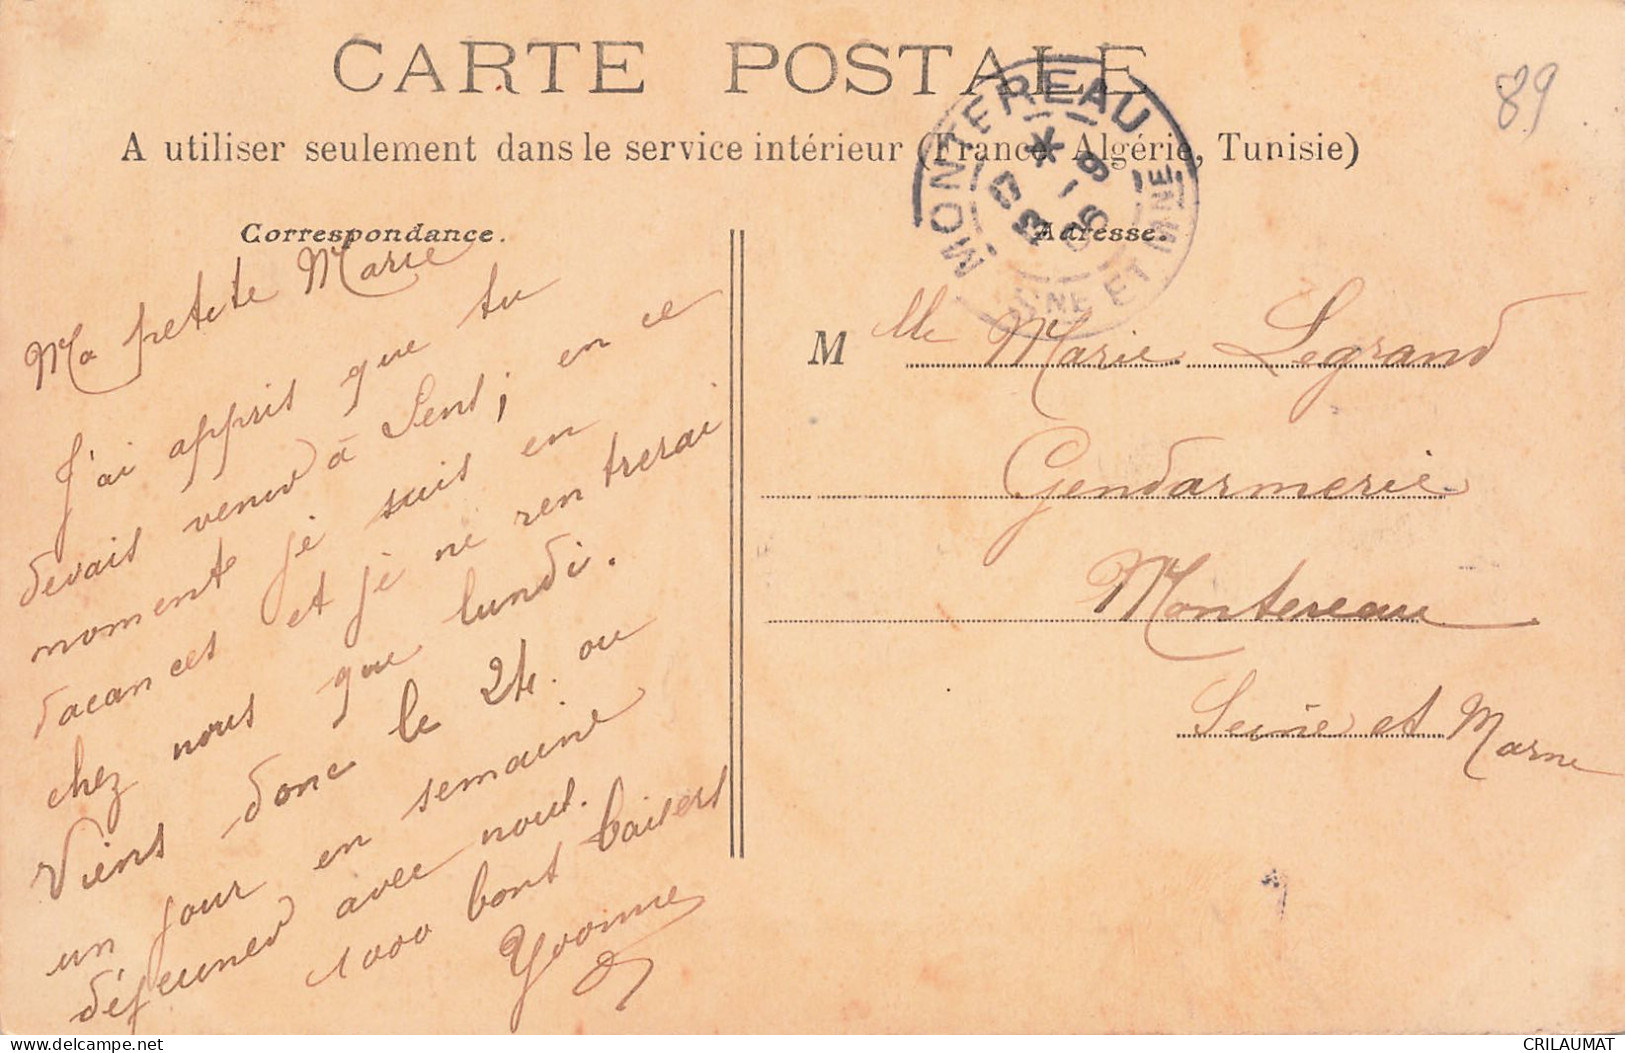 CARTE POSTALE
89
A utiliser seulement dans le service intérieur (France, Algérie, Tunisie)
MONTEREAU
SEINE ET MNE
Correspondance.
Adresse.
Ma petite Marie
J'ai appris que tu
devais venir à Sens, en ce
moment je suis en
vacances et je ne rentrerai
chez nous que lundi.
Viens donc le 24 ou
un jour en semaine
déjeuner avec nous.
1000 bons baisers
Yvonne
Mlle Marie Legrand
Gendarmerie
Montereau
Seine et Marne
delcampe.net
CRILAUMAT